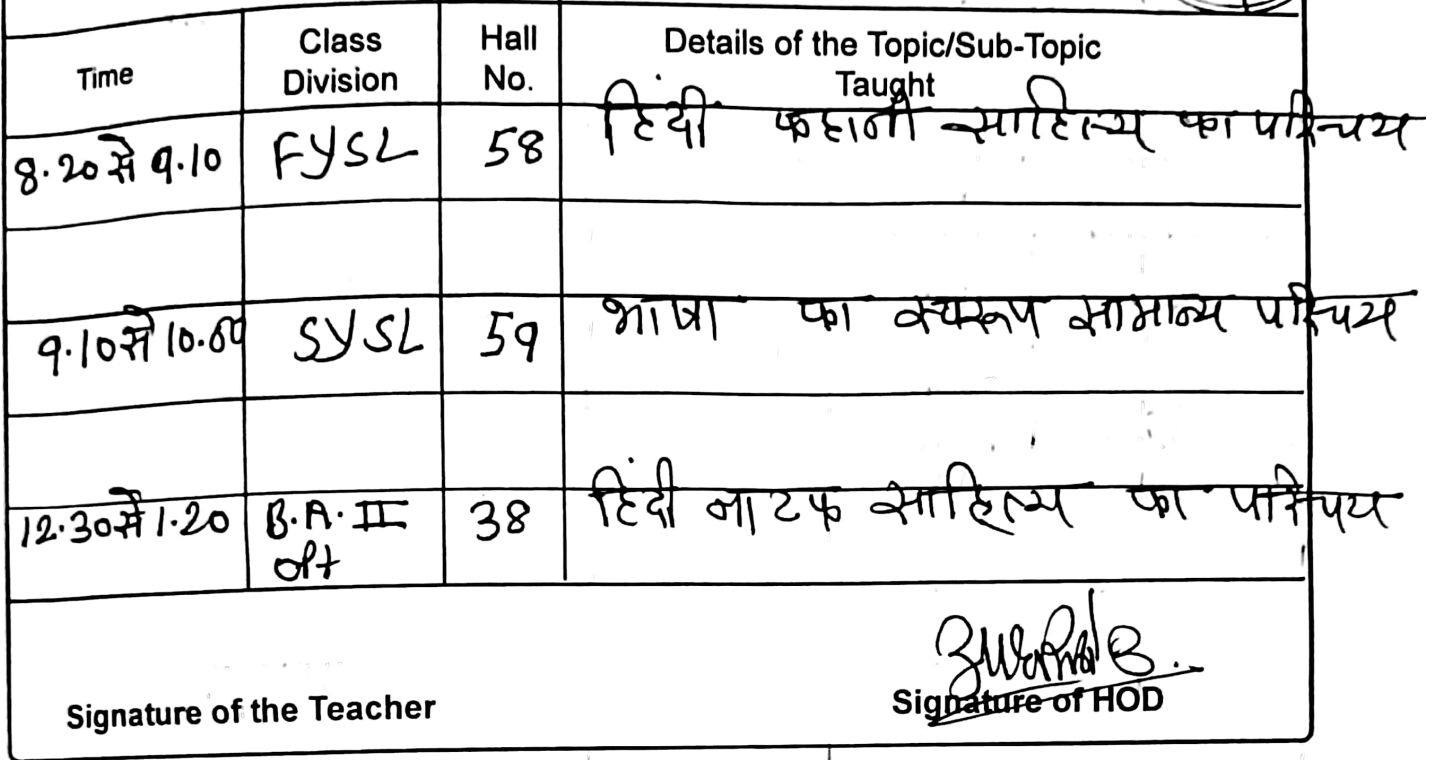 Time Class Division Hall No. Details of the Topic/Sub-Topic Taught
8.20 से 9.10 FYSL 58 हिंदी कहानी साहित्य का परिचय
9.10 से 10.00 SYSL 59 भाषा का स्वरूप सामान्य परिचय
12.30 से 1.20 B.A. II opt 38 हिंदी नाटक साहित्य का परिचय
Signature of the Teacher Signature of HOD